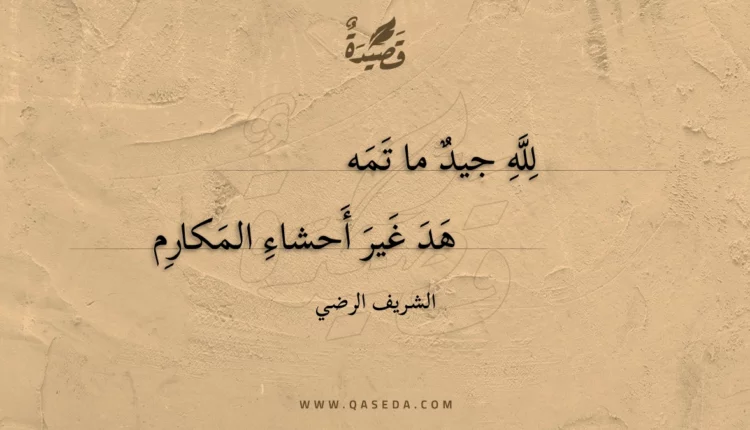 قَصِيْدَةٌ
لِلَّهِ جيدٌ ما تَمَه
هَدَ غَيرَ أَحشاءِ المَكارِم
الشريف الرضي
WWW.QASEDA.COM